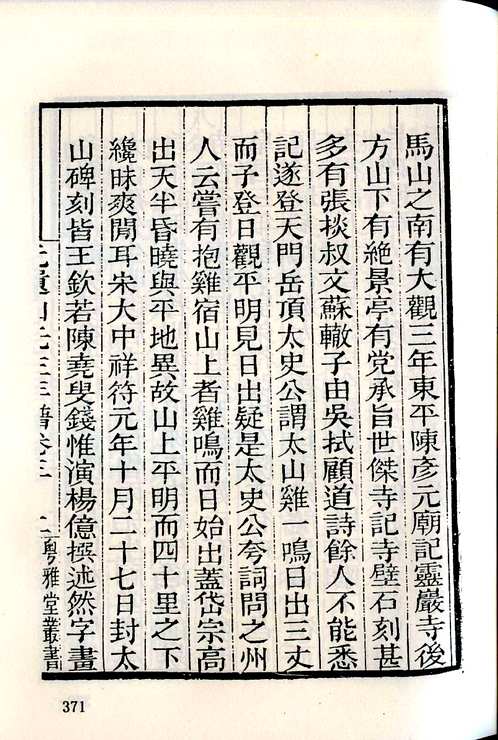 馬山之南有大觀三年東平陳彥元廟記靈巖寺後
方山下有絶景亭有党承旨世傑寺記寺壁石刻甚
多有張掞叔文蘇轍子由吳拭顧道詩餘人不能悉
記遂登天門岳頂太史公謂太山雞一鳴日出三丈
而予登日觀平明見日出疑是太史公夸詞問之州
人云嘗有抱雞宿山上者雞鳴而日始出蓋岱宗高
出天半昏曉與平地異故山上平明而四十里之下
纔昧爽間耳宋大中祥符元年十月二十七日封太
山碑刻皆王欽若陳堯叟錢惟演楊億撰述然字畫
元遺山先生年譜卷三
粤雅堂叢書
371